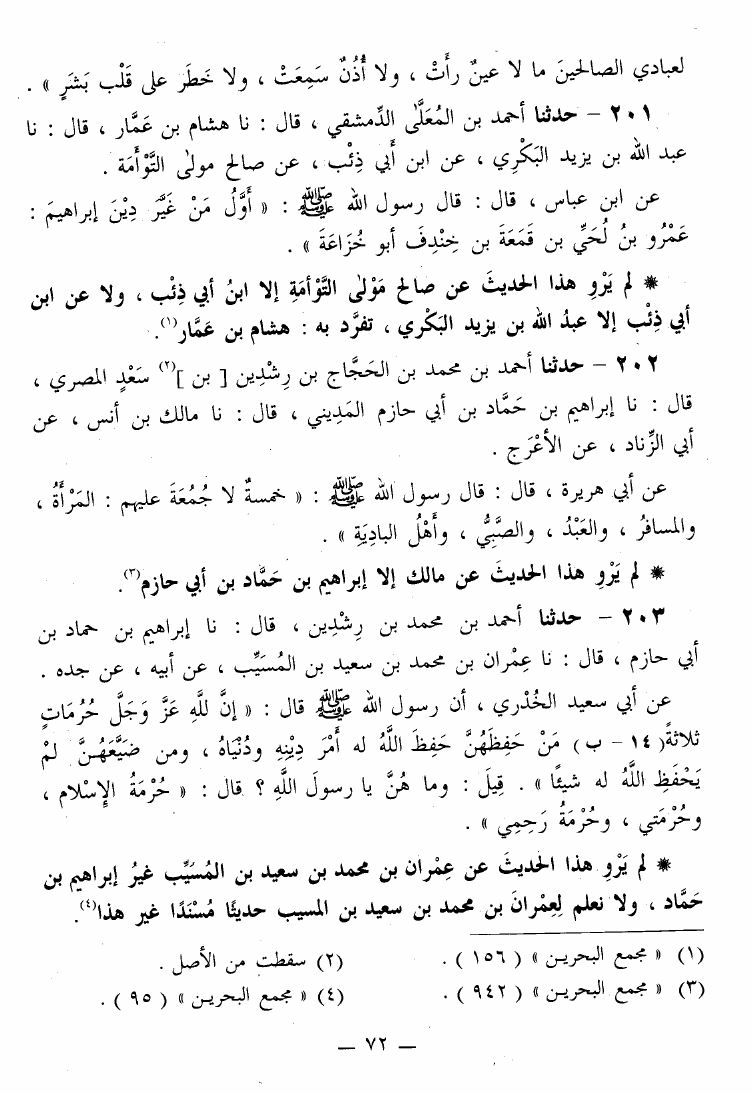 لعبادي الصالحينَ ما لا عينٌ رأَتْ ، ولا أُذُنٌ سَمِعَتْ ، ولا خَطَر على قَلْب بَشَرٍ » .
٢٠١ – حدثنا أحمد بن المُعَلَّى الدِّمشقي ، قال : نا هشام بن عَمَّار ، قال : نا
عبد الله بن يزيد البَكْرِي ، عن ابن أبي ذِئْب ، عن صالح مولى التَّوْأَمَة .
عن ابن عباس ، قال : قال رسول الله ﷺ : « أَوَّلُ مَنْ غَيَّرَ دِيْنَ إبراهيمَ :
عَمْرُو بنُ لُحَيِّ بن قَمَعَةَ بن خِنْدِفَ أبو خُزَاعَةَ » .
* لم يَرْوِ هذا الحديثَ عن صالح مَوْلى التَّوْأمَةِ إلا ابنُ أبي ذِئْب ، ولا عن ابن
أبي ذِئْب إلا عبدُ الله بن يزيد البَكْري ، تفرَّد به : هشام بن عَمَّار(١).
٢٠٢ – حدثنا أحمد بن محمد بن الحَجَّاج بن رِشْدِين [ بن ](٢) سَعْدٍ المصري ،
قال : نا إبراهيم بن حَمَّاد بن أبي حازم المَدِيني ، قال : نا مالك بن أنس ، عن
أبي الزِّناد ، عن الأعْرَج .
عن أبي هريرة ، قال : قال رسول الله ﷺ : « خمسةٌ لا جُمُعَةَ عليهم : المَرْأَةُ ،
والمسافرُ ، والعَبْدُ ، والصَّبِيُّ ، وأَهْلُ البادِيَةِ » .
* لم يَرْوِ هذا الحديثَ عن مالك إلا إبراهيم بن حَمَّاد بن أبي حازم(٣).
٢٠٣ – حدثنا أحمد بن محمد بن رِشْدِين ، قال : نا إبراهيم بن حماد بن
أبي حازم ، قال : نا عِمْران بن محمد بن سعيد بن المُسَيِّب ، عن أبيه ، عن جده .
عن أبي سعيد الخُدْري ، أن رسول الله ﷺ قال : « إنَّ للَّهِ عَزَّ وَجَلَّ حُرُمَاتٍ
ثلاثةً( ١٤ – ب ) مَنْ حَفِظَهُنَّ حَفِظَ اللَّهُ له أَمْرَ دِينِهِ ودُنْيَاهُ ، ومن ضَيَّعَهُـنَّ لمْ
يَحْفَظِ اللَّهُ له شيئًا » . قِيلَ : وما هُنَّ يا رسولَ اللَّهِ ؟ قال : « حُرْمَةُ الإسْلام ،
وحُرْمَتي ، وحُرْمَةُ رَحِمِي » .
* لم يَرْوِ هذا الحديثَ عن عِمْران بن محمد بن سعيد بن المُسَيِّب غيرُ إبراهيم بن
حَمَّاد ، ولا نعلم لِعِمْرانَ بن محمد بن سعيد بن المسيب حديثًا مُسْنَدًا غير هذا(٤).
(١) « مجمع البحريـن » ( ١٥٦ ) .
(٢) سقطت من الأصل .
(٣) « مجمع البحريـن » ( ٩٤٢ ) .
(٤) « مجمع البحريـن » ( ٩٥ ) .
— ٧٢ —